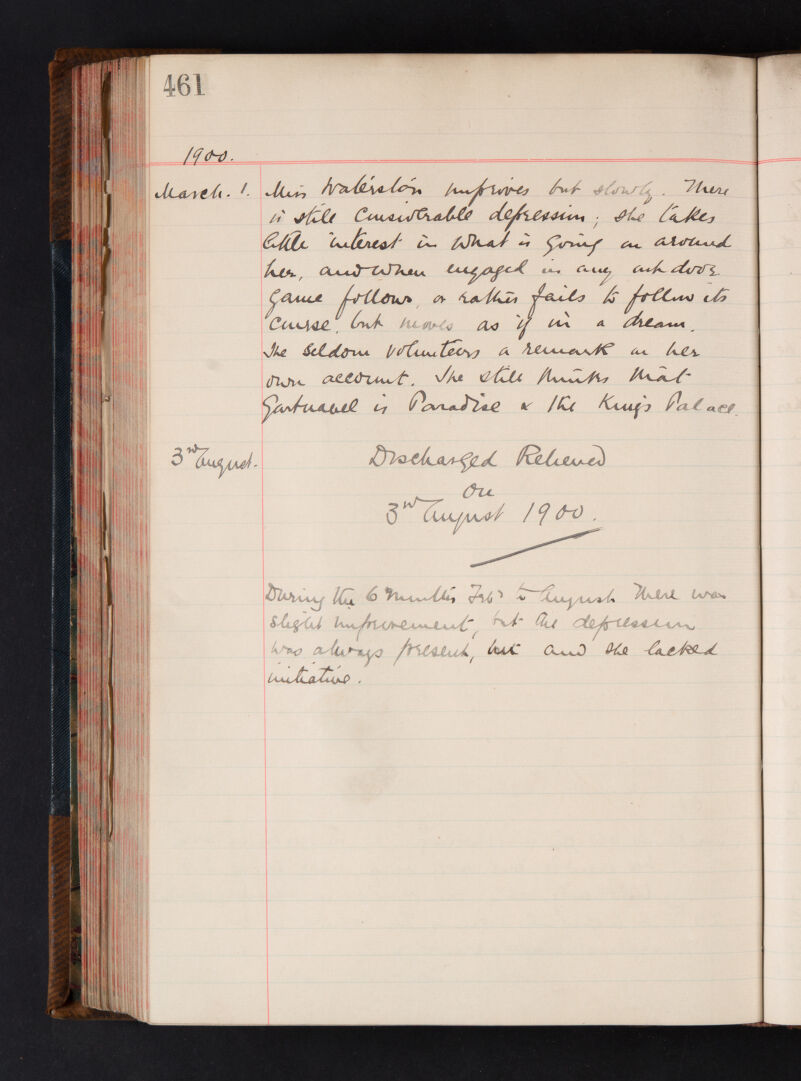 461
1900.
March. 1. Miss Waterston improves but slowly. There
is still considerable depression; she takes
little interest in what is going on around
her, and when engaged in any outdoor
game follows, or rather fails to follow its
course, but moves as if in a dream.
She seldom volunteers a remark on her
own account. She still thinks that
Gartnavel is Paradise & the King's Palace.
3rd August. Discharged Relieved
on
3rd August 1900.
During the 6 months Feby to August there was
slight improvement, but the depression
was always present, but and she lacked
initiative.